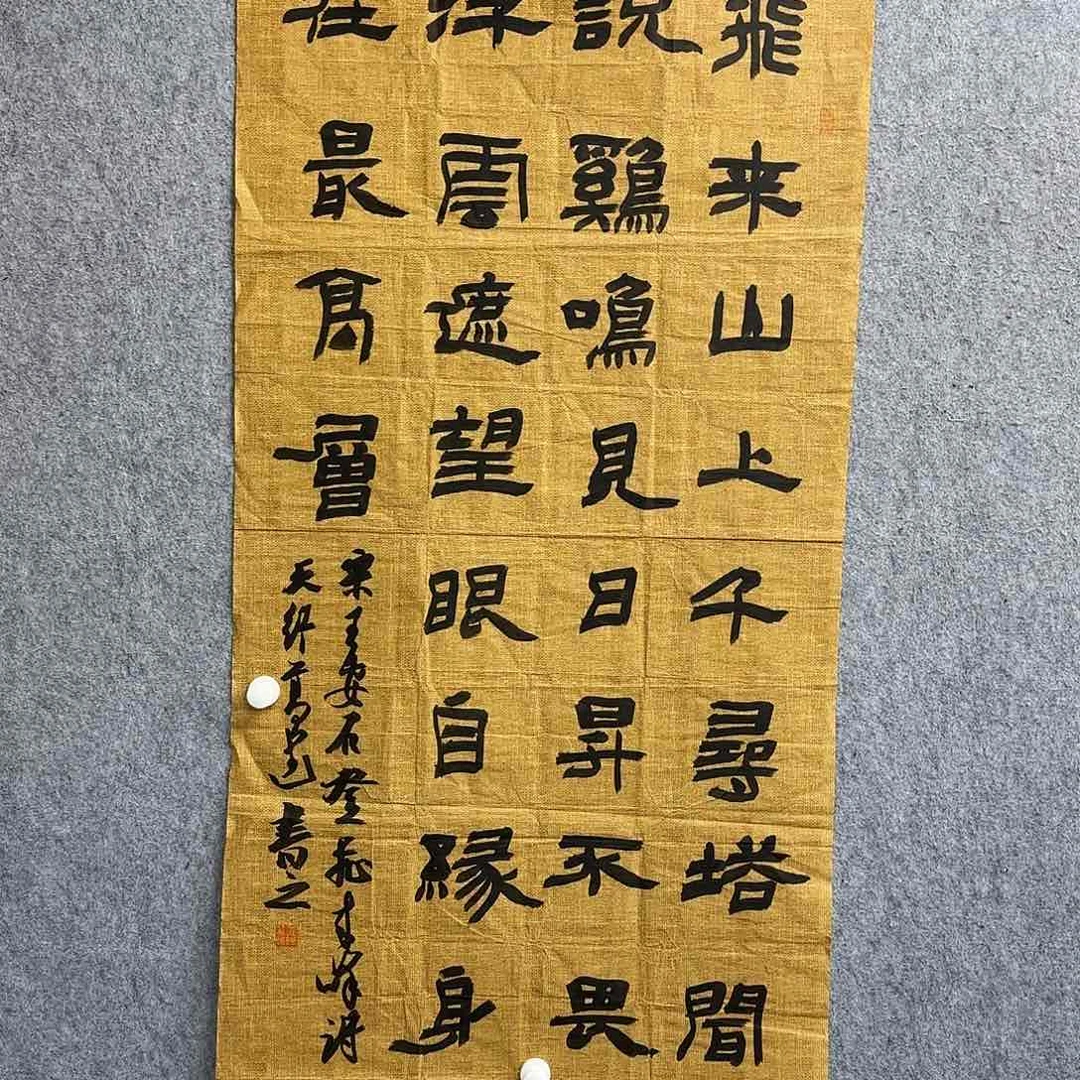 飛来山上千尋塔聞
說鷄鳴見日昇不畏
浮雲遮望眼自緣身
在最高層
宋王安石登飛来峰詩
書之